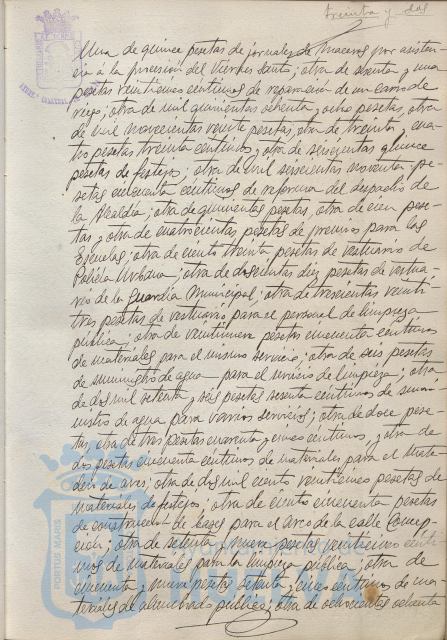 treinta y dos
Una de quince pesetas de jornales de maceros por asisten-
cia á la procesión del Viernes Santo; otra de sesenta y una
pesetas veintiun centimos de reparacion de un carro de
riego; otra de mil quinientas ochenta y ocho pesetas, otra
de mil novecientas veinte pesetas, otra de treinta cua-
tro pesetas treinta centimos, y otra de seiscientas quince
pesetas de festejos; otra de mil seiscientas noventa pe-
setas cincuenta centimos de reforma del despacho de
la Alcaldía; otra de quinientas pesetas, otra de cien pese-
tas y otra de cuatrocientas pesetas de premios para las
Escuelas; otra de ciento treinta pesetas de vestuarios de
Policía Urbana; otra de doscientas diez pesetas de vestua-
rio de la Guardia Municipal; otra de trescientas veinti-
tres pesetas de vestuario para el personal de limpieza
pública; otra de veintinueve pesetas cincuenta centimos
de materiales para el mismo servicio; otra de seis pesetas
de suministro de agua para el servicio de limpieza; otra
de dos mil setenta y seis pesetas sesenta centimos de sumi-
nistro de agua para varios servicios; otra de doce pese-
tas, otra de tres pesetas cuarenta y cinco centimos, y otra de
dos pesetas cincuenta centimos de materiales para el
de aves; otra de dos mil ciento veintiuna pesetas de
materiales de festejos; otra de ciento cincuenta pesetas
de construccion de bases para el arco de la calle Concep-
ción; otra de setenta y nueve pesetas veinticinco centi-
mos de materiales para la limpieza pública; otra de
cincuenta y nueve pesetas setenta y cinco centimos de ma-
teriales de alumbrado público; otra de ochocientas ochenta
PORTUS MARIS
Ayuntamiento de
HUELVA